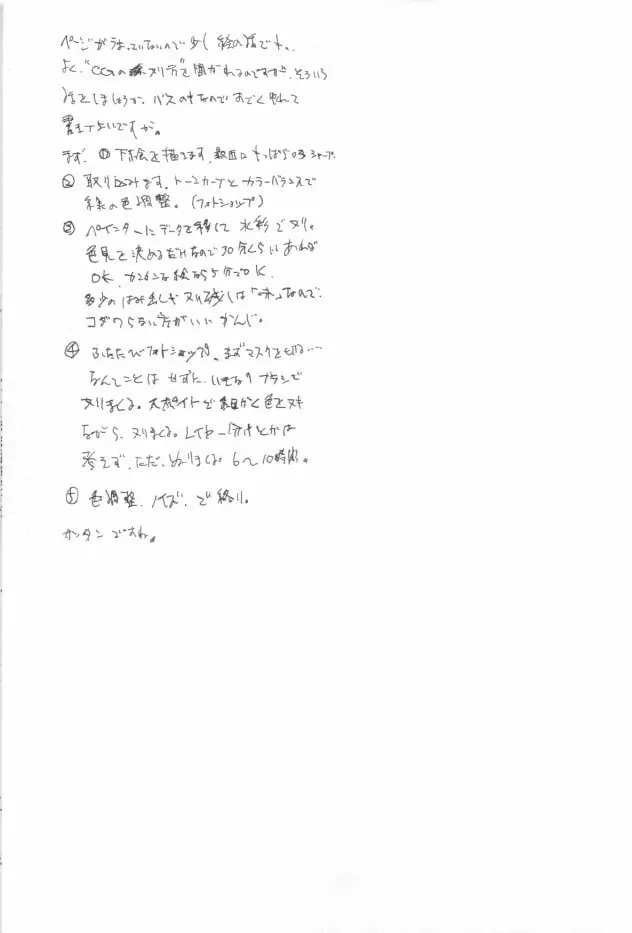 ページがうまっていないので少し絵の話でも。
よく、"CGのヌリ方"を聞かれるのですが、そういう
話をしましょうか。バスの中なのですごくゆれて
書きづらいですが。
まず、① 下絵を描きます。最近はもっぱら0.3シャープ。
② 取り込みます。トーンカーブとカラーバランスで
線の色調整。(フォトショップ)
③ ペインターにデータを移して水彩でヌリ。
色見を決めるだけなので30分くらいあれば
OK。カンタンな絵なら5分でOK。
多少のはみ出しやヌリ残しは「味」なので
コダワらない方がいいかんじ。
④ ふたたびフォトショップ。まずマスクを切る…
なんてことはせずに、いきなりブラシで
ヌリまくる。スポイトで細かく色をヌキ
ながら、ヌリまくる。レイヤー分けとかは
考えず、ただ、ぬりまくる。6〜10時間。
⑤ 色調整、ノイズ、で終り。
カンタンですね。